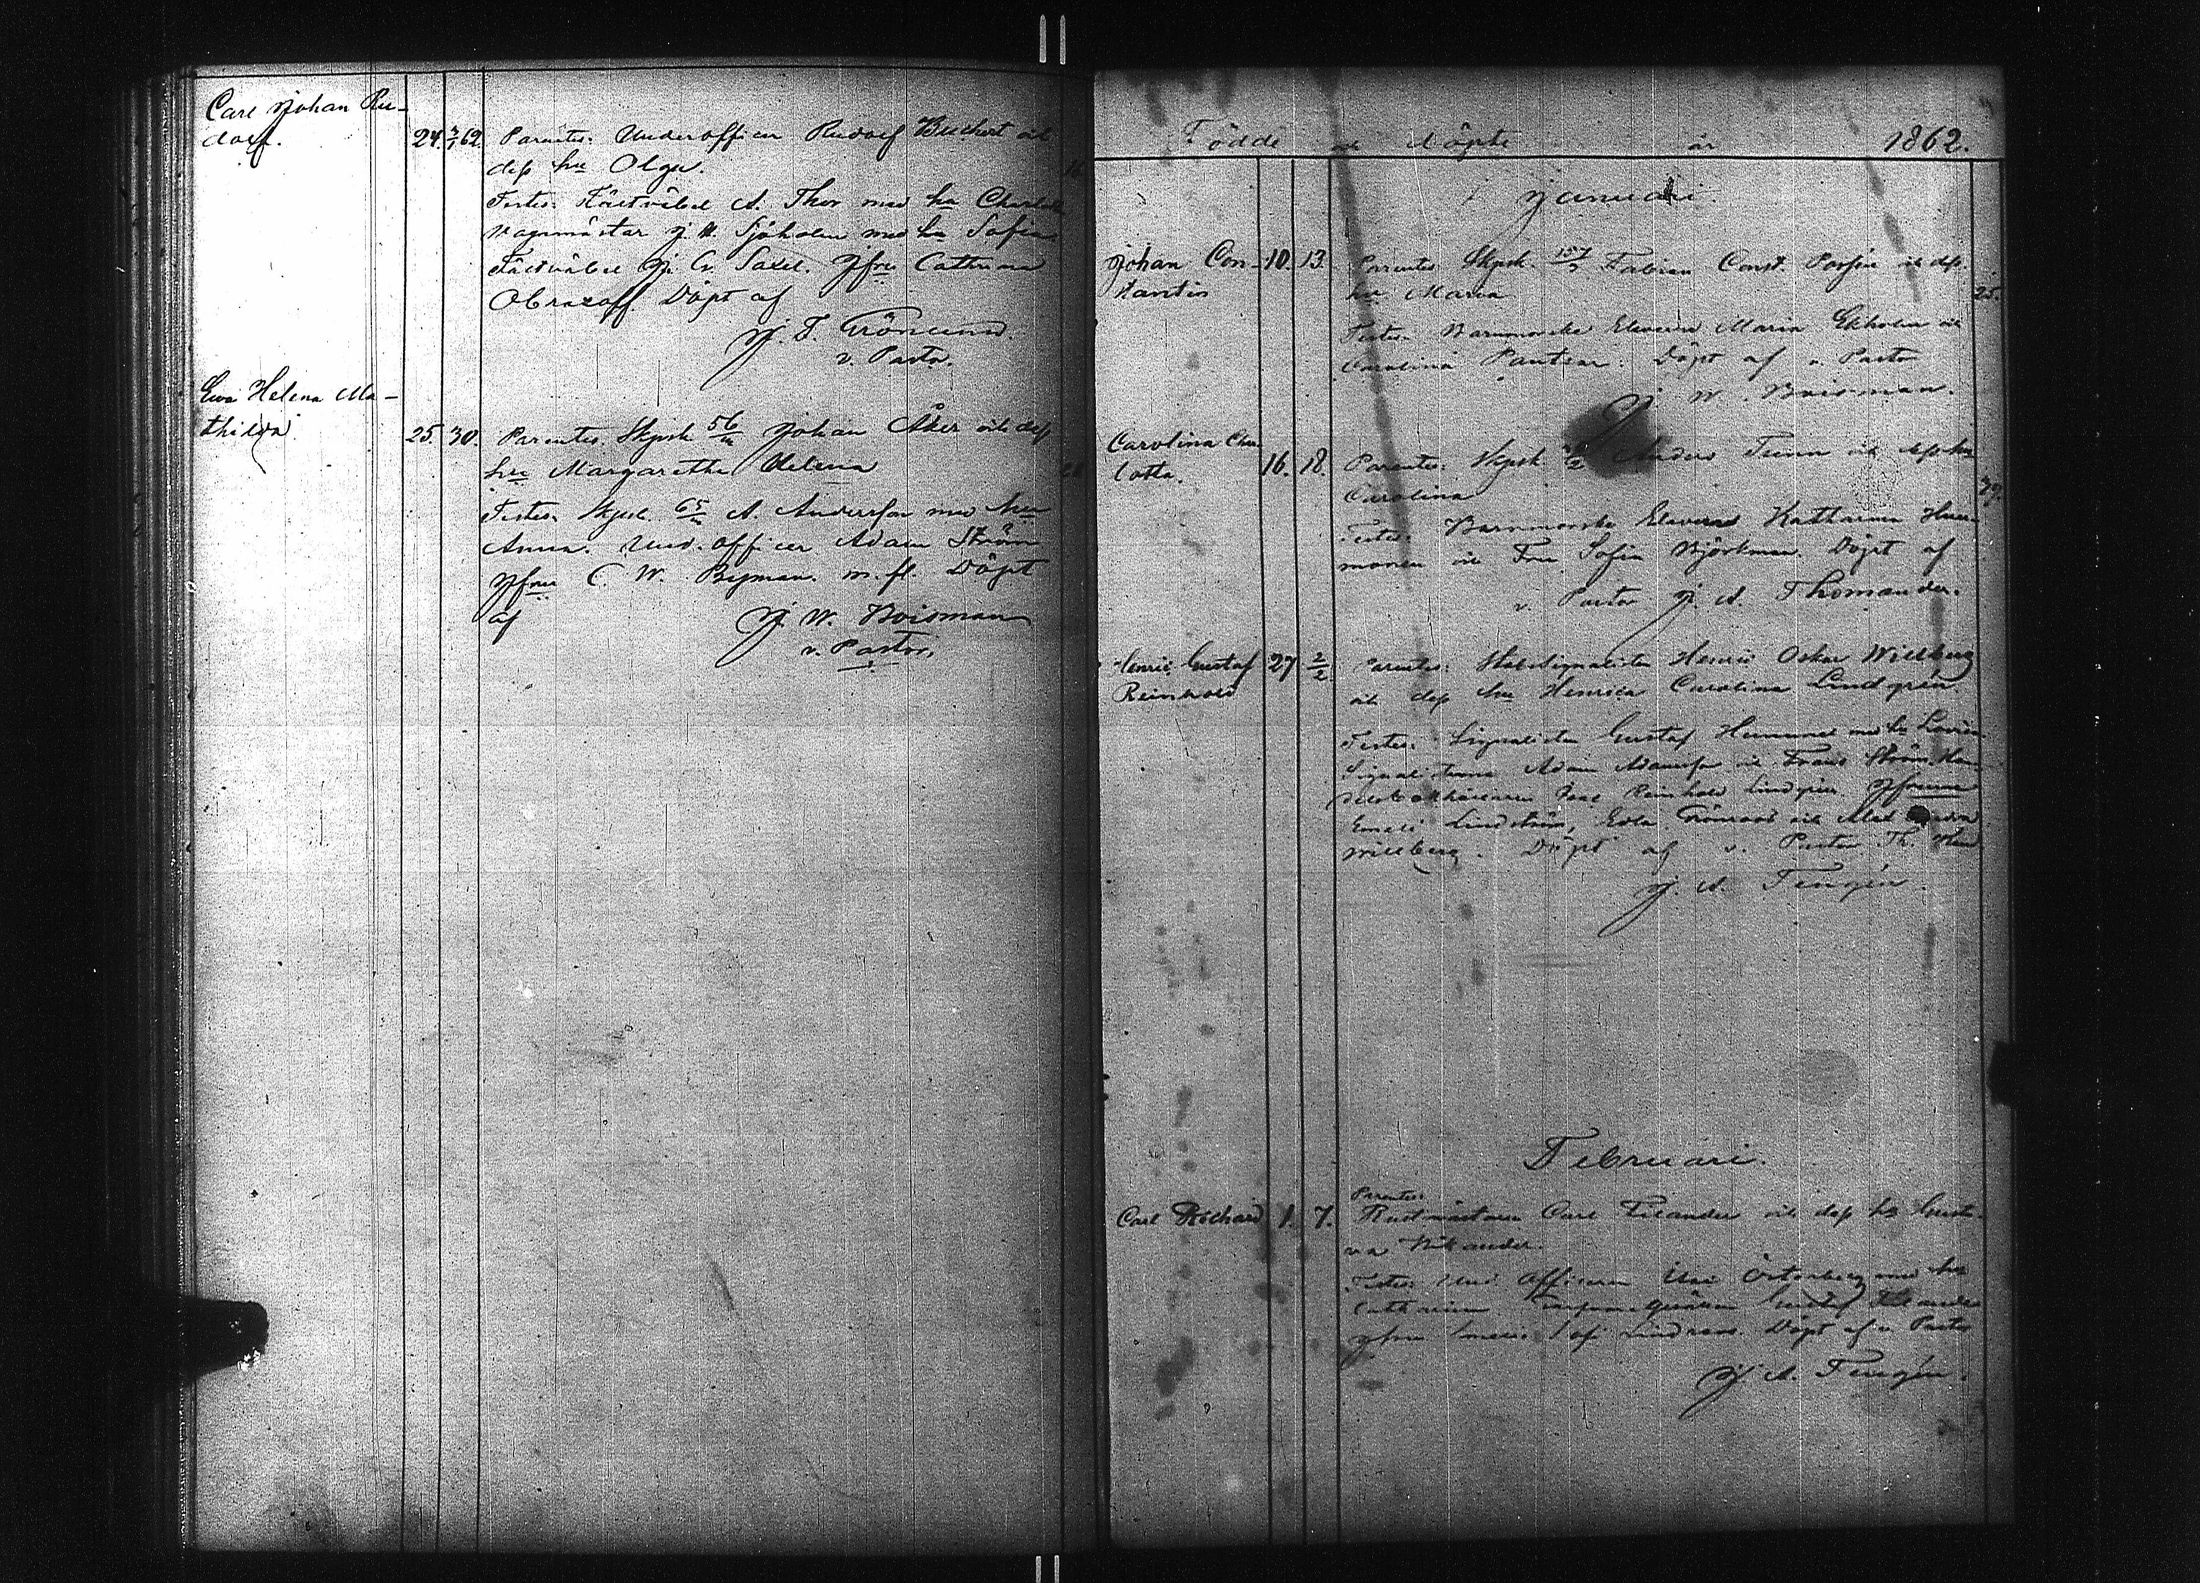 Carl Johan Ru-
dolf. 24. 2/1 62. Parentes: Underofficer Rudolf Buchert och
dess hu Olga.
Testes: Fältväbel A. Thor med hu Charlott
vagnmästar J. A. Sjöholm med hu Sofia
Fältväbel J. G. Saxel. Jfru Cathrina
Obrazoff. Döpt af
J. F. Grönlund.
v. Pastor.
Ewa Helena Ma-
thilda 25. 30. Parentes. Skpsk 56/m Johan Åker och dess
hu Margaretha Helena
Testes. Skpsk. 65/m A. Andersson med hu
Anna. Und.officer Adam Ström
Jfru C. W. Byman m. fl. Döpt
af J. W. Boisman
v. Pastor.
Födde och döpte år 1862.
Januari.
Johan Con- 10. 13. Parentes Skpsk. Fabian Const. Porfir och dess
stantin hu Maria 25.
Testes. Barnmorske Eleverne Maria Ekholm och
Carolina Pantsar. Döpt af v Pastor
J. W. Boisman.
Carolina Char-
lotta. 16. 18. Parentes. Skpsk. Anders Tenn och dess hu
Carolina
Testes. Barnmorske Eleverne Katharina
och Fru Sofia Björkman. Döpt af
v. Pastor J. A. Thomander.
Henric Gustaf 27 2/2 Parentes: Henric Oskar Willberg
Reinhold och dess hu Henrica Carolina Lindgrén
Testes. Signalisten Gustaf med hu Lovisa
Adam Adamsson och Frans Ström
Reinhold Lindgrén Jfrurna
Emeli Lindström, Edla Grönroos och
Willberg. Döpt af v. Pastor
J. A. Tengén.
Februari.
Parentes:
Carl Richard 1. 7. Rustmästaren Carl Filander och dess hu Gusta-
va Nikander.
Testes: Und Officeren Österberg med hu
Catharina Gustaf Filander
Jfru Lindroos. Döpt af v Pastor
J. A. Tengén.